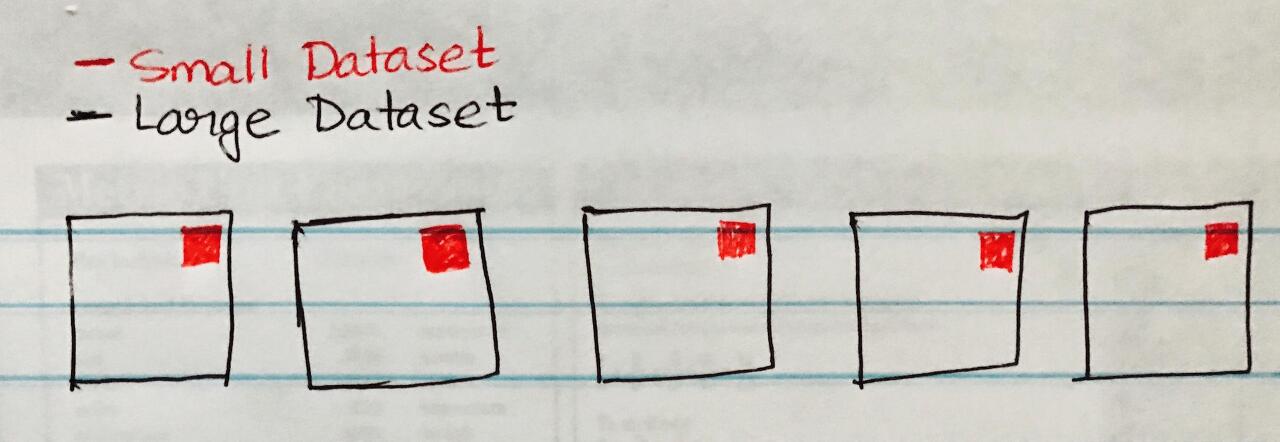 - Small Dataset
- Large Dataset